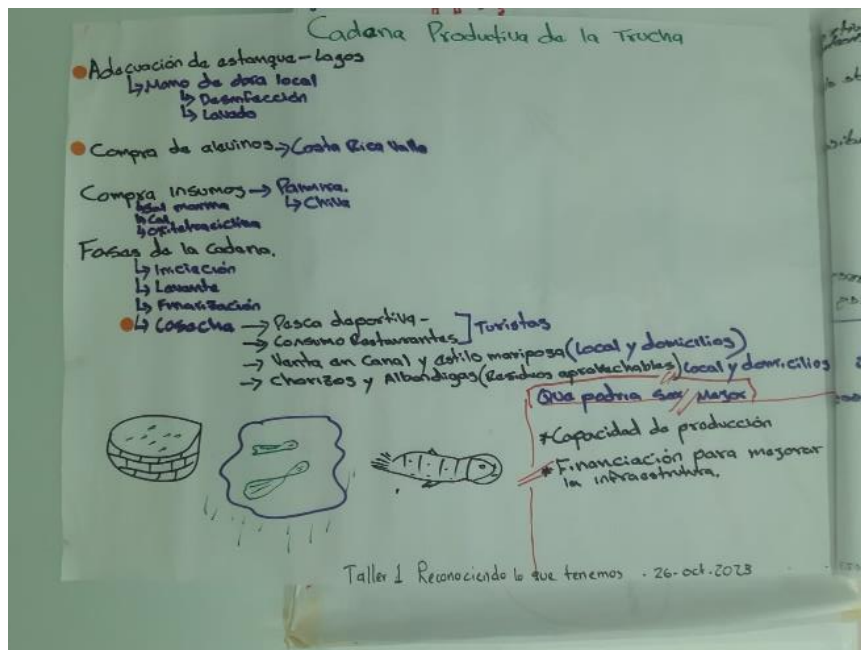 Cadena Productiva de la Trucha
Adecuación de estanque - Lagos
↳ Mano de obra local
↳ Desinfección
↳ Lavado
Compra de alevinos → Costa Rica Valle
Compra insumos →
↳ Sal marina
↳ Cal
↳ Oxitetraciclina
Fases de la cadena.
↳ Iniciación
↳ Levante
↳ Finarización
↳ Cosecha → Pesca deportiva -
→ Consumo Restaurantes ] Turistas
→ Venta en Canal y estilo mariposa (Local y domicilios)
→ Chorizos y Albondigas (Residuos aprovechables) Local y domicilios
Que podria ser Mejor
* Capacidad de producción
* Financiación para mejorar
la infraestrutura.
Taller 1 Reconociendo lo que tenemos . 26-oct-2023